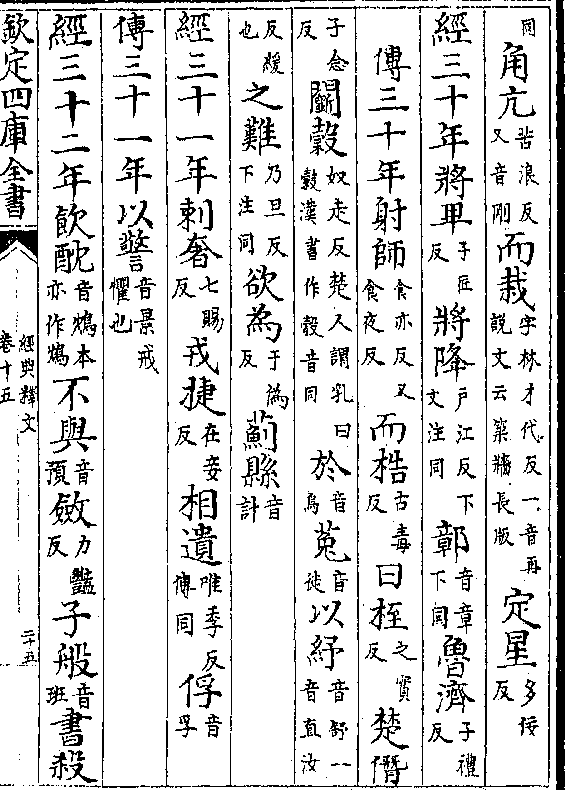 同角亢苦浪反又音剛而栽字林才代反一音再說文云築牆長版定星多佞反
經三十年將卑子匠反將降戶江反下文注同鄣音章下同魯濟子禮反
傳三十年射師食亦反又食夜反而梏古毒反曰桎之實反楚僭
子念反鬭穀奴走反楚人謂乳曰穀漢書作㝅音同於音烏菟音徒以紓音舒一音直汝
反緩也之難乃旦反下注同欲為于偽反薊縣音計
經三十一年刺奢七賜反戎捷在妾反相遺唯季反傳同俘音孚
傳三十一年以警音景戒懼也
經三十二年飲酖音鴆本亦作鴆不與音預斂力豔反子般音班書殺
欽定四庫全書
經典釋文
卷十五
二十五